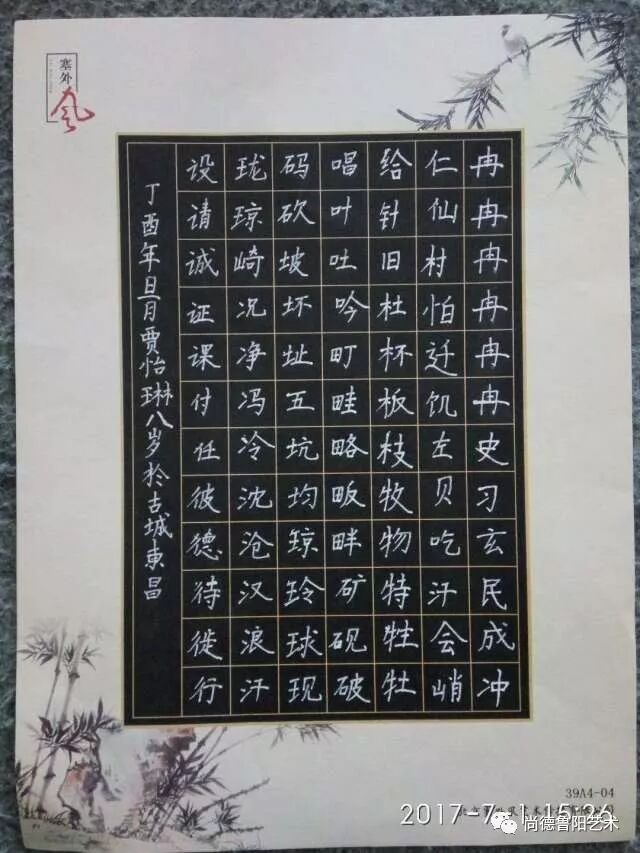 塞外风
冉冉冉冉冉冉史习玄民成冲
仁仙村怕迁饥左贝吃汗会峭
给针旧杜杯板枝牧物特牲牡
唱叶吐吟町畦略畈畔矿砚破
码砍坡坏址五坑均琼玲球现
珑琼崎况净冯冷沈沧汉浪汗
设请诚证课付任彼德待徙行
丁酉年旦月贾怡琳八岁於古城东昌
39A4-04
尚德鲁阳艺术